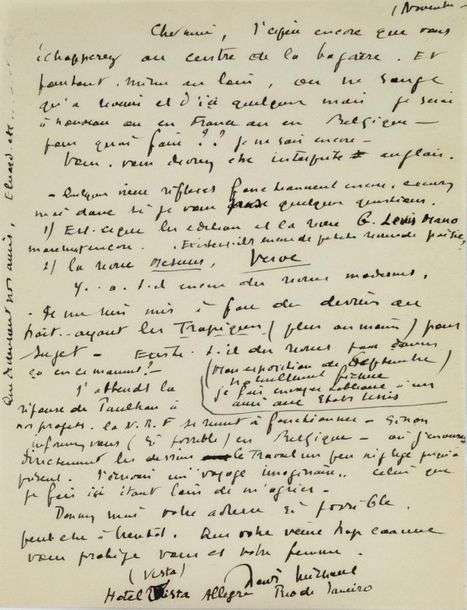 1 Novembre
Cher ami, J'espère encore que vous
échapperez au centre de la bagarre. Et
pourtant. même au loin, on ne songe
qu'à revenir et d'ici quelques mois je serai
à nouveau ou en France ou en Belgique —
pour quoi faire ?? je ne sais encore —
vous devez être interprète anglais.
— Quelques revues fonctionnent encore,
moi dans si je vous pose quelques questions.
1) Est-ce que les éditions et la revue G. Levis Mano
marchent encore.
2) la revue Mesures, Verve
Y. a. t. il encore des revues modernes,
Je me suis mis à faire des dessins au
trait. ayant les Tropiques (plus ou moins) pour
sujet — Existe. t. il des revues pour
ça en ce moment? —
(Mon exposition de Septembre
je fais envoyer tableaux à un
ami aux Etats Unis
J'attends la
réponse de Paulhan à
nos projets. la N.R.F. se remet à fonctionner — Sinon
informez vous (si possible) en Belgique — où j'enverrai
directement les dessins le travail un peu négligé jusqu'à
présent. J'écrirai un voyage imaginaire. Celui que
je fais ici étant loin de m'agréer —
Donnez moi votre adresse si possible.
peut être à bientôt. Que votre veine trop connue
vous protège vous et votre femme.
(Vista)
Hotel Vista Allegre Rio de Janeiro
Henri Michaux
Que deviennent nos amis, Eluard etc....